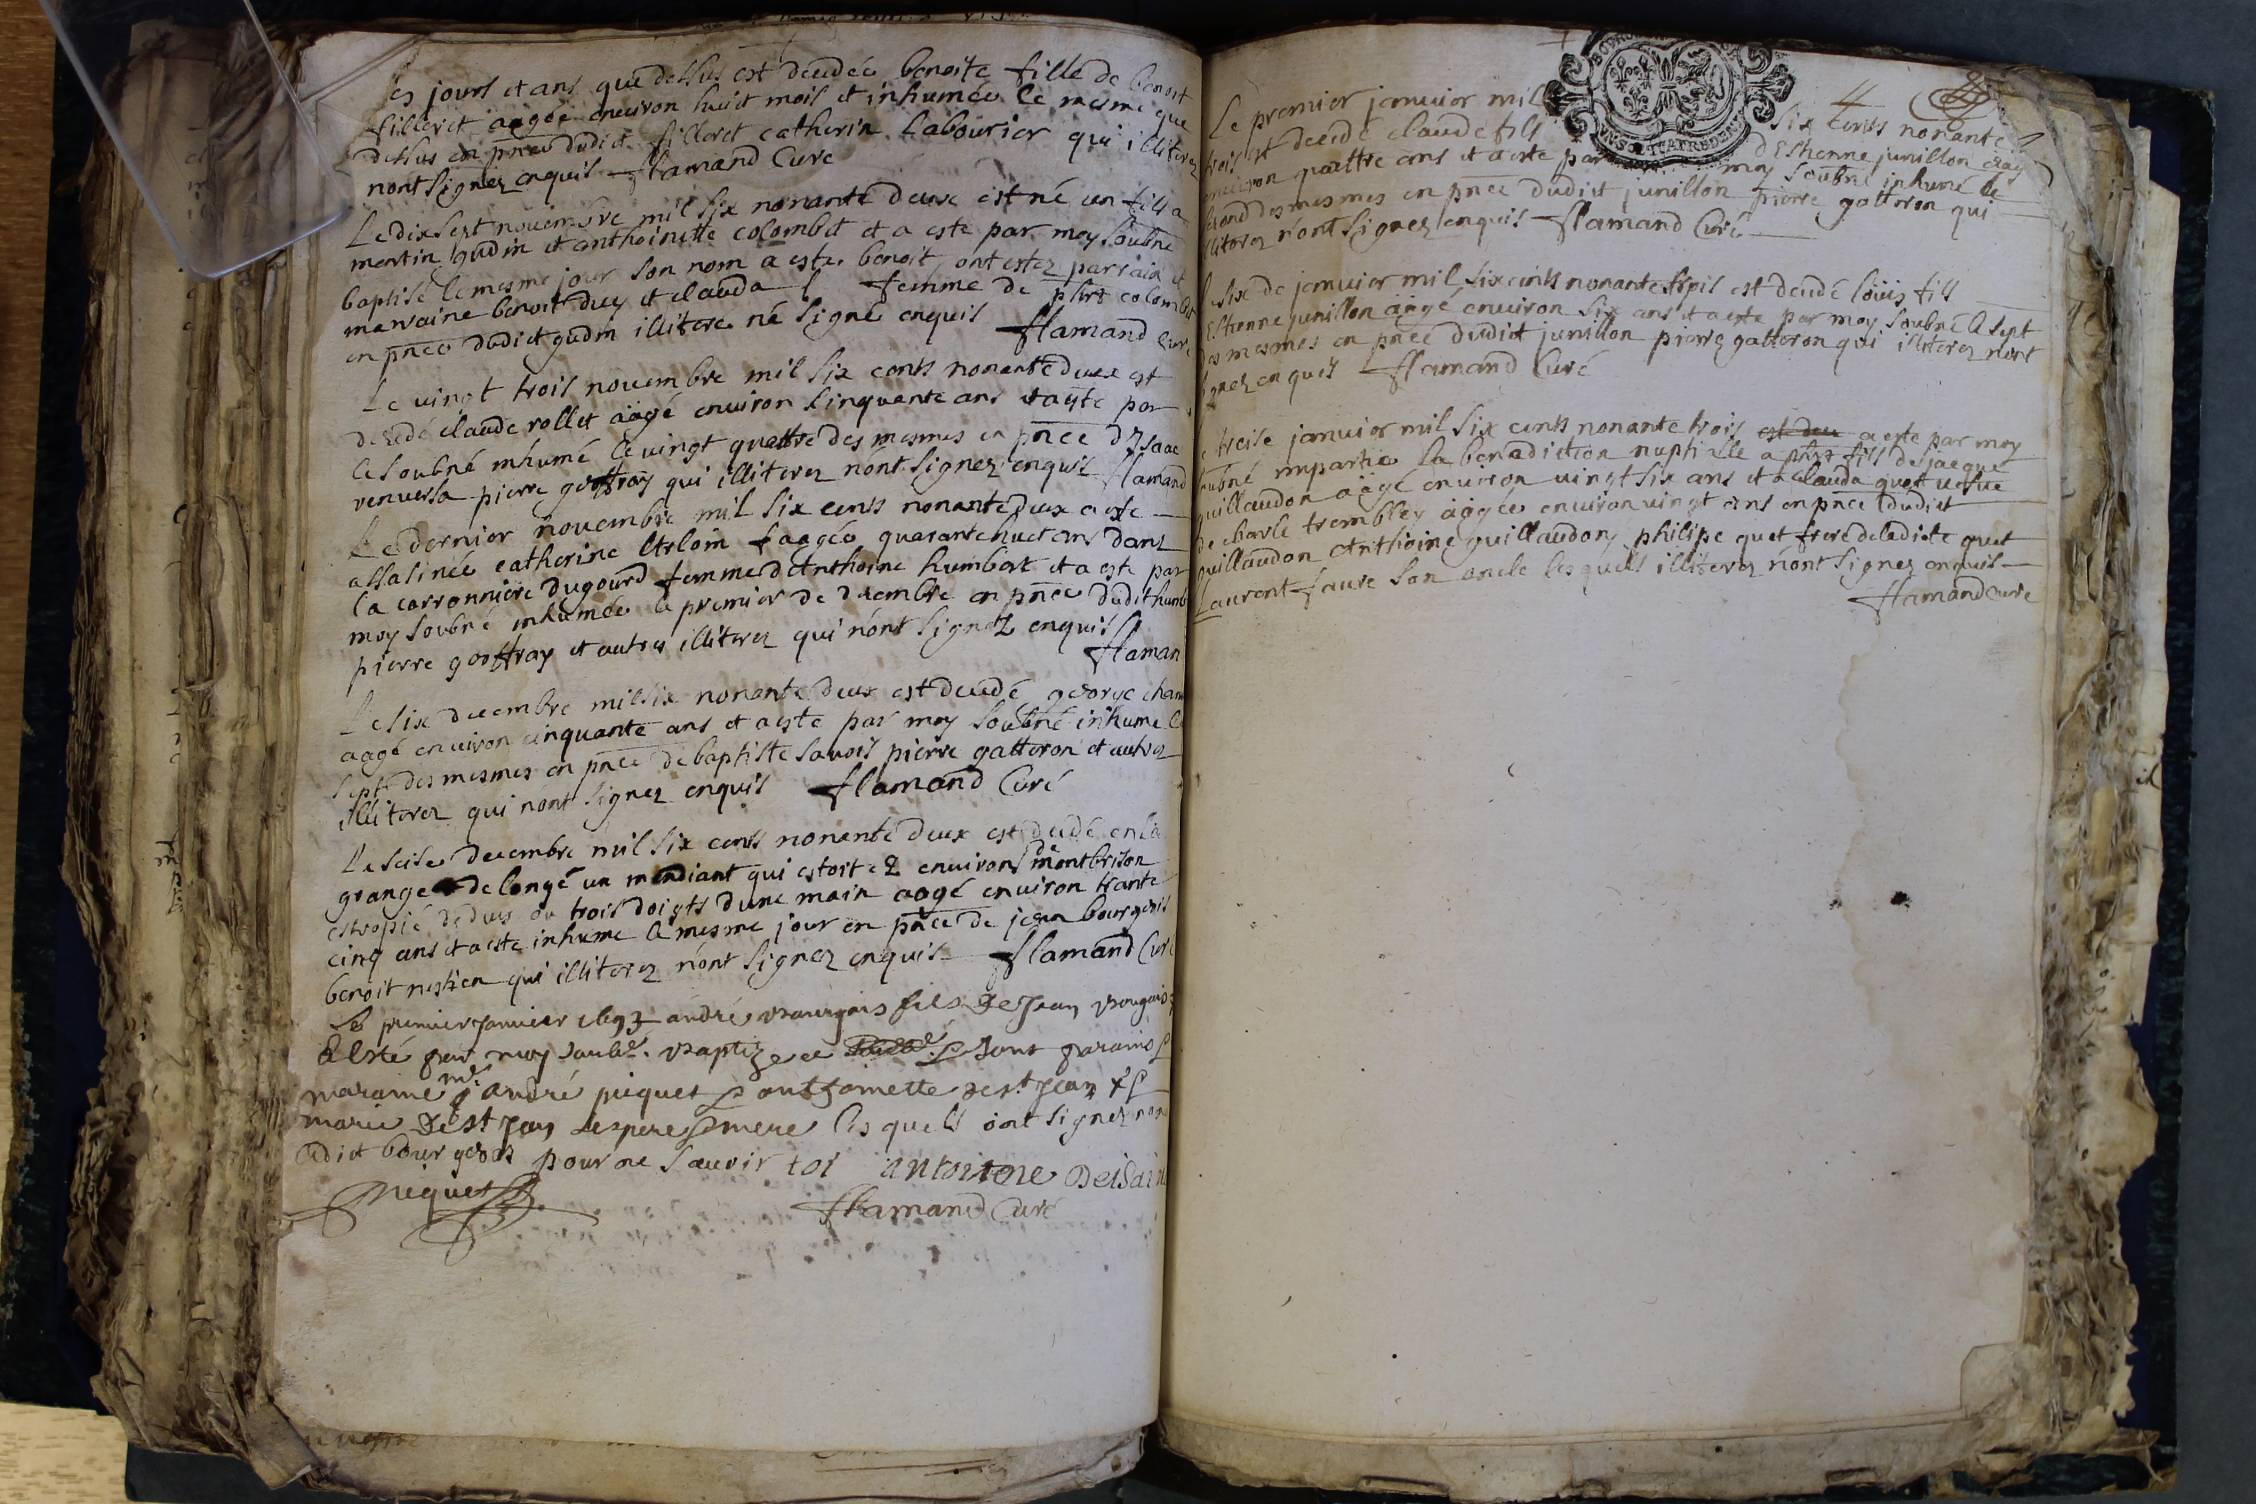 es jours et ans que dessus est decedée benoite fille de benoit
filleret aagée environ huict mois et inhumée le mesme que
dessus en pnce dudict filleret catherin labourier qui illiterez
nont signez enquis flamand Curé
Le dixsept novembre mil six nonante deux est né un fils a
martin gudin et anthoinette colombet et a este par moy soubné
baptisé le mesme jour son nom a este benoit ont estez parrain et
marraine benoit duc et clauda femme de phes colombet
en pnce dudict gudin illitere ne signé enquis flamand Curé
Le vingt trois novembre mil six cents nonante deux est
decedé claude rollet aagé environ sinquante ans et a este par
le soubné inhumé le vingt quattre des mesmes en pnce d'Isaac
renversa pierre geoffray qui illiterez n'ont signez enquis flamand
Le dernier novembre mil six cents nonante deux a este
assasinée catherine aagée quarante huict ans dans
la carronniere dugourd femme d'Anthoine humbert et a este par
moy soubné inhumée le premier de decembre en pnce dudit humb
pierre geoffray et autres illiterez qui n'ont signez enquis
flaman
Le six decembre mil six nonante deux est decedé george cham
aagé environ cinquante ans et a este par moy soubné inhume le
sept des mesmes en pnce de baptiste savois pierre gatteron et autres
illiterez qui n'ont signez enquis flamand Curé
Le seise decembre mil six cents nonante deux est decedé en la
grange de longé un mendiant qui estoit ez environs de montbrison
estropié de deux ou trois doigts d'une main aagé environ trante
cinq ans et a este inhume le mesme jour en pnce de jean bourgeois
benoit qui illiterez n'ont signez enquis flamand Curé
Le premier Janvier 1693 andré Bourgois fils De Jean Bougois
a Esté par moy soubé. Baptizee et sont parains et
maraine Mr andré piquet et anthoinette de st Jean
marie De st Jean ses pere et mere les quels ont signez non
ledict bourgeois pour ne sauoir toi antoitone Deisain
piquet
flamand Curé
Le premier janvier mil six cents nonante
trois est decedé claude fils d'Estienne junillon aagé
environ quattre ans et a este par moy soubné inhumé le
second des mesmes en pnce dudict junillon pierre gatteron qui
illiterez n'ont signez enquis flamand Curé
Le sixe de janvier mil six cents nonante trois est decedé loüis fils
d'Estienne junillon aagé environ six ans et a este par moy soubné le sept
des mesmes en pnce dudict junillon pierre gatteron qui illiterez n'ont
signez enquis flamand Curé
Le treise janvier mil six cents nonante trois est dece a este par moy
soubné impartie la benediction nuptielle a phes fils de jacque
guillaudon aagé environ vingt six ans et a clauda quet vefve
de charle trembley aagée environ vingt ans en pnce dudict
guillaudon Anthoine guillaudon, philipe quet frere de ladicte quet
Laurent faure son oncle lesquels illiterez n'ont signez enquis
flamand Curé